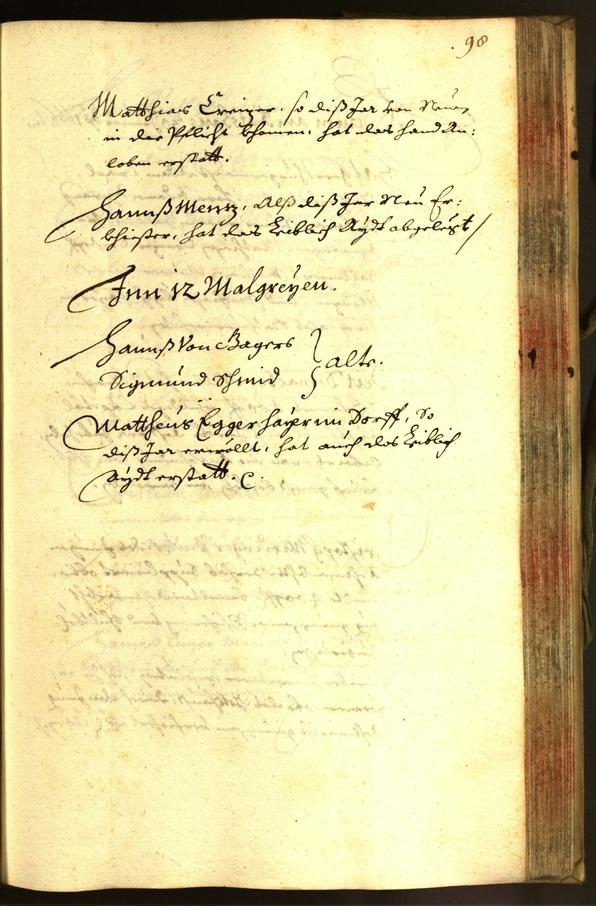 98
Matthias Creizer, so diß Jar von Neuen
in die Pflicht khomen, hat das hand An:
loben erstatt.
Hannß Mentz, Alß diß Jar Neu Er:
khiester, hat das Leiblich Aydt abgelegt /
Inn 12 Malgreyen.
Hannß Von Bagers
Sigmund Schmid } alte.
Mattheus Egger Mayr im Dorff, So
diß Jar erwöllt, hat auch das Leiblich
Aydt erstatt.